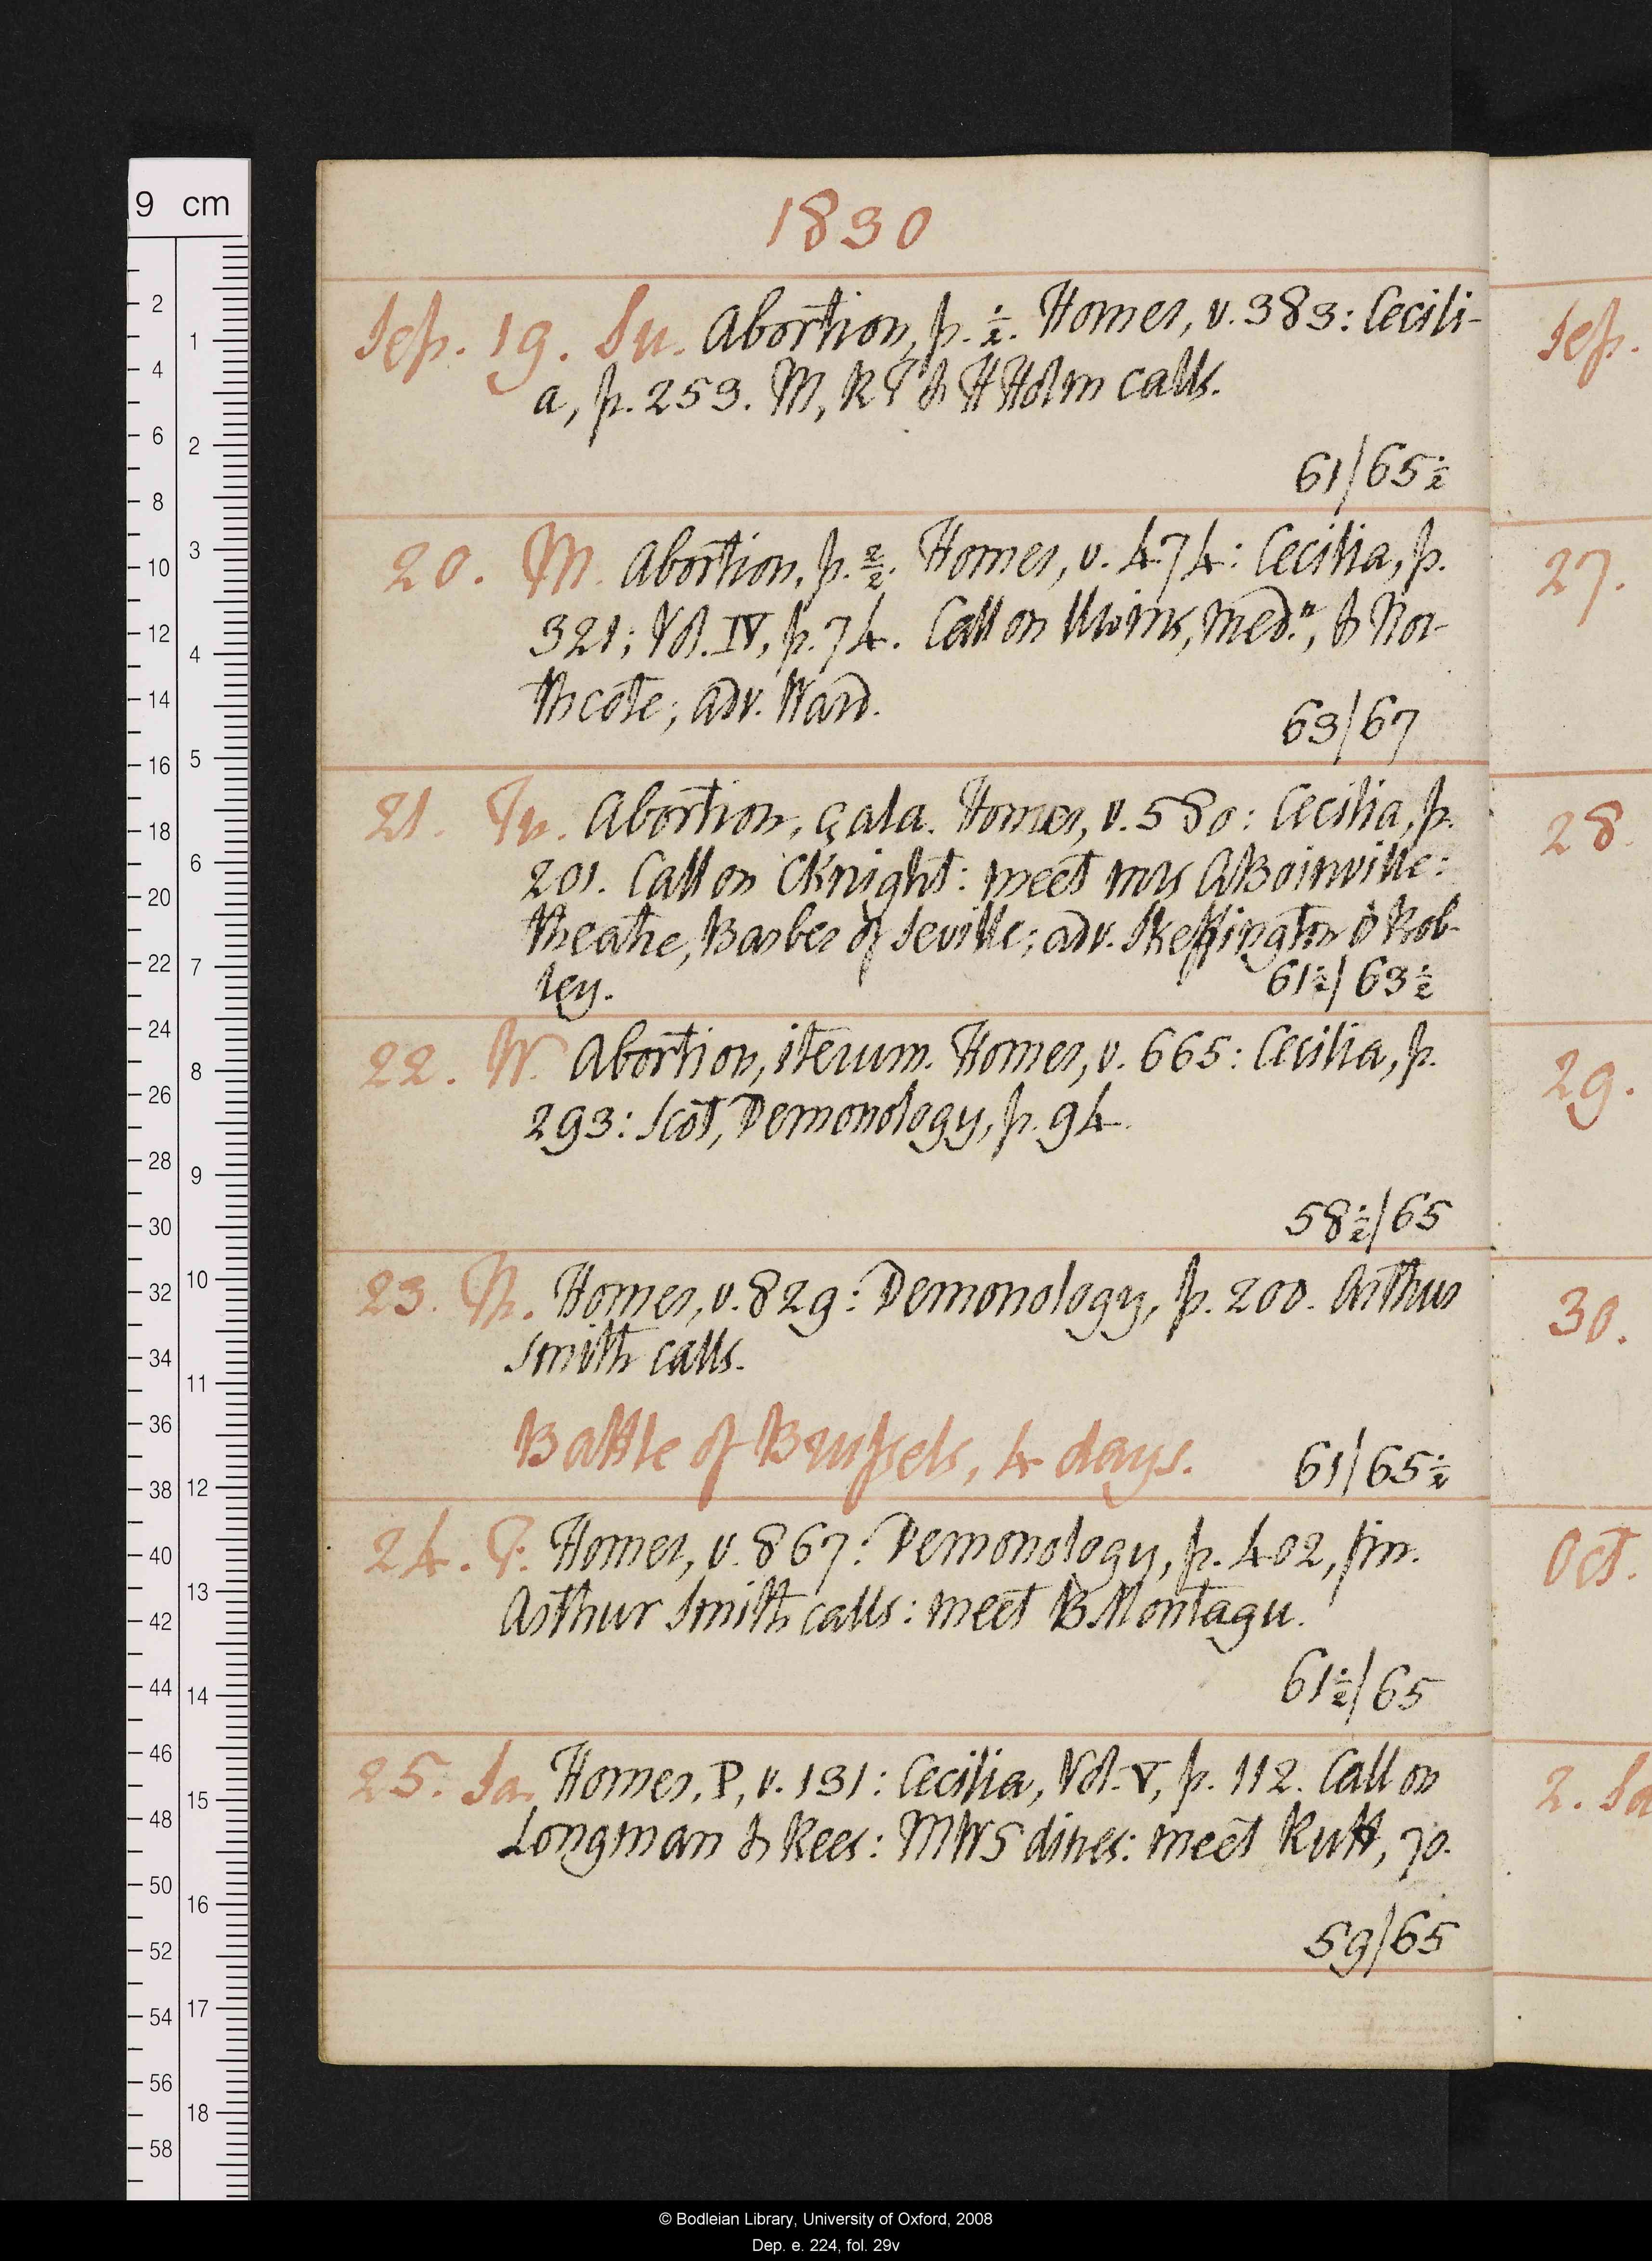 1830
Sep. 19. Su. Abortion, p. ½. Homer, v. 383: Cecili-
a, p. 253. M, RT & HHolm calls.
61/65½
20. M. Abortion, p. 2/2. Homer, v. 474: Cecilia, p.
321; Vol. IV, p. 74. Call on Uwins, med.n, & Nor-
thcote; adv. Ward.
63/67
21. Tu. Abortion, çala. Homer, v. 580: Cecilia, p.
201. Call on CKnight: meet mrs ABoinville:
theatre, Barber of Seville; adv. Skeffington & Rob-
ley.
61½/63½
22. W. Abortion, iterum. Homer, v. 665: Cecilia, p.
293: Scot, Demonology, p. 94.
58½/65
23. Th. Homer, v. 829: Demonology, p. 200. Arthur
Smith calls.
Battle of Brussels, 4 days.
61/65½
24. F. Homer, v. 867: Demonology, p. 402, fin.
Arthur Smith calls: meet BMontagu.
61½/65
25. Sa. Homer, P, v. 131: Cecilia, Vol. V, p. 112. Call on
Longman & Rees: MWS dines: meet Rutt, jo.
59/65
Sep.
27.
28.
29.
30.
Oct.
2. Sa
9 cm
2
4
6
8
10
12
14
16
18
20
22
24
26
28
30
32
34
36
38
40
42
44
46
48
50
52
54
56
58
1
2
3
4
5
6
7
8
9
10
11
12
13
14
15
16
17
18
© Bodleian Library, University of Oxford, 2008
Dep. e. 224, fol. 29v